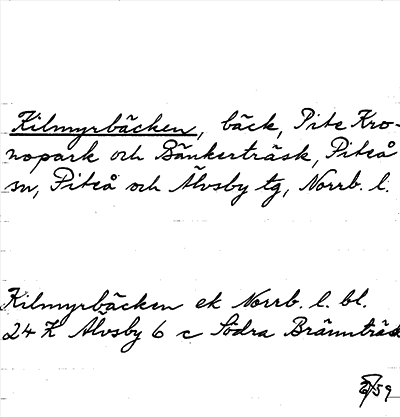 Kilmyrbäcken, bäck, Pite Kro-
nopark och Bänkerträsk, Piteå
sn, Piteå och Älvsby tg, Norrb. l.
Kilmyrbäcken ek Norrb. l. bl.
24 K Älvsby 6 c Södra Brännträsk
/59